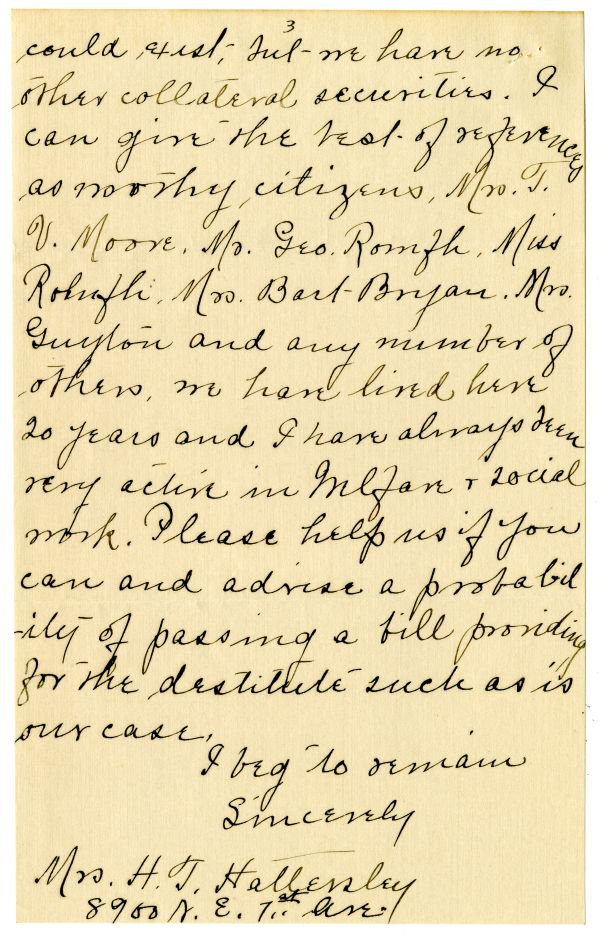 3
could exist, but we have no
other collateral securities. I
can give the best of references
as worthy citizens, Mrs. T.
V. Moore. Mr. Geo. Romfh. Miss
Rohmfh. Mrs. Bart Bryan. Mrs.
Guyton and any number of
others, we have lived here
20 years and I have always been
very active in Welfare & social
work. Please help us if you
can and advise a probabil
-ity of passing a bill providing
for the destitute such as is
our case.
I beg to remain
Sincerely
Mrs. H. T. Hattersley
8900 N. E. Ave.